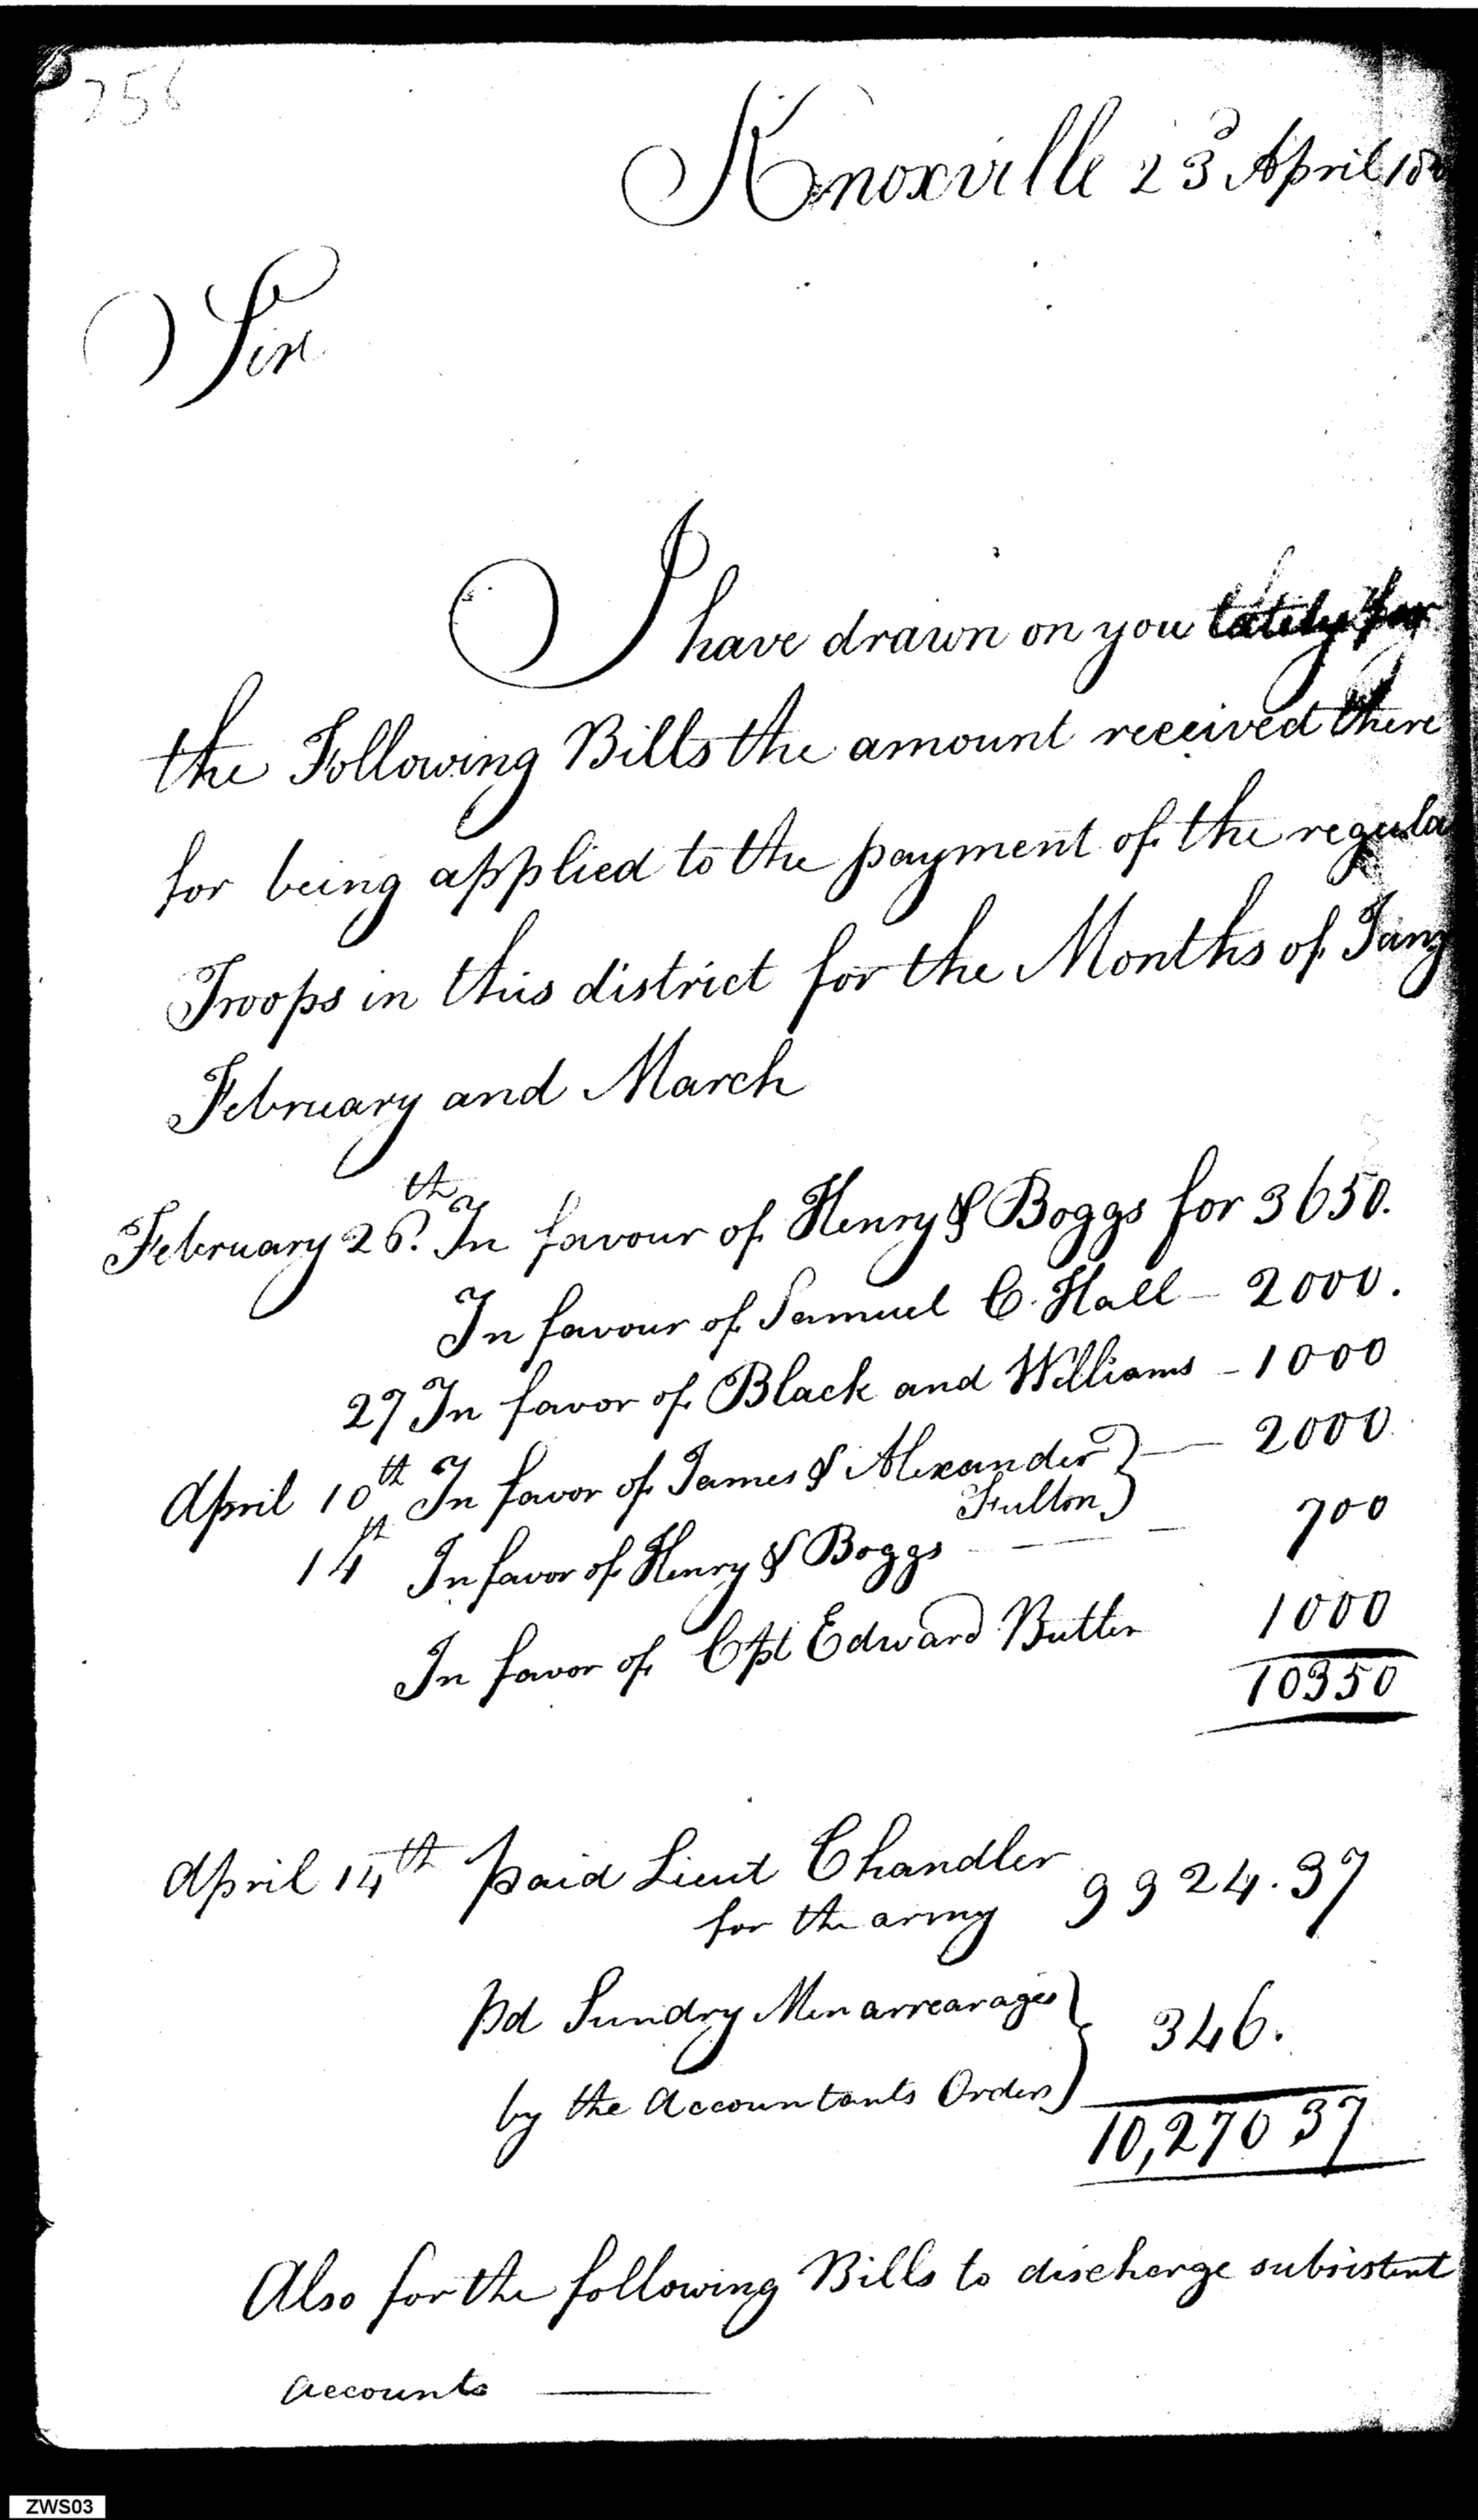 256
Knoxville 23d April 180
Sir
I have drawn on you lately for
the Following Bills the amount received there
for being applied to the payment of the regula
Troops in this district for the Months of Jany
February and March
February 26th. In favour of Henry & Boggs for 3650.
In favour of Samuel C. Hall - 2000.
27 In favor of Black and Williams - 1000
April 10th In favor of James & Alexander } - 2000
Fulton
14th In favor of Henry & Boggs - - - 700
In favor of Cpt Edward Butler 1000
10350
April 14th paid Lieut Chandler 9924.37
for the army
pd Sundry Men arrearages } 346.
by the Accountants Orders
10,270 37
Also for the following Bills to discharge subsistent
accounts ———
ZWS03